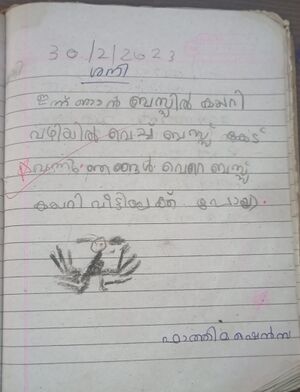 30/2/2023
ശനി
ഇന്ന് ഞാൻ ബസ്സിൽ കയറി
വഴിയിൽ വെച്ച് ബസ്സ് കേട്
വന്നു. ഞങ്ങൾ വെറെ ബസ്സ്
കയറി വീട്ടിലേക്ക് പോയി.
ഫാത്തിമ ഷെൻസ